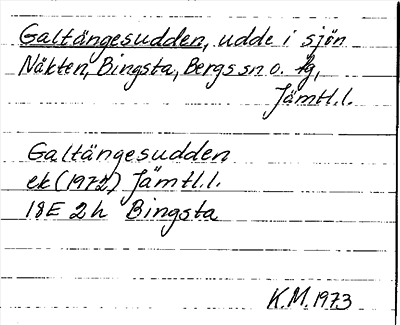 Galtängesudden, udde i sjön
Näkten, Bingsta, Bergs sn o. tg,
Jämtl.l.
Galtängesudden
ek (1972) Jämtl.l.
18E 2h Bingsta
K.M. 1973